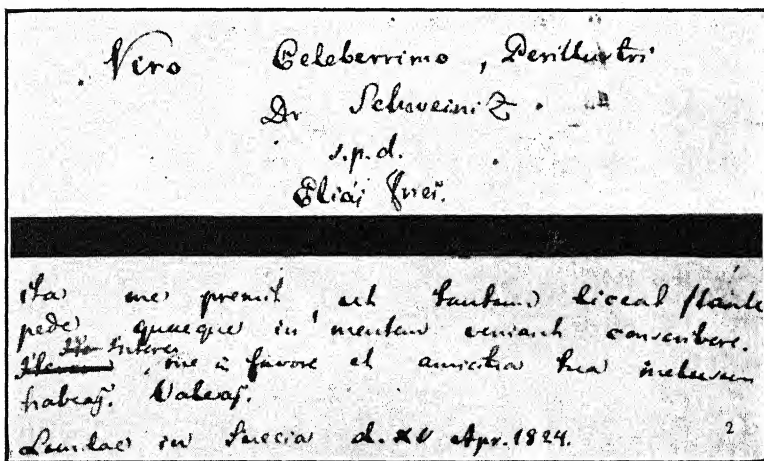 Viro Celeberrimo, Perillustri
Dr Schweinitz.
s.p.d.
Elias Fries.
ita me premit, ut tantum liceat stante
pede quaeque in mentem veniant conscribere.
Interea
me in favore et amicitia tua inclusum
habeas. Valeas.
Lundae in Suecia d. XV Apr. 1824.
2